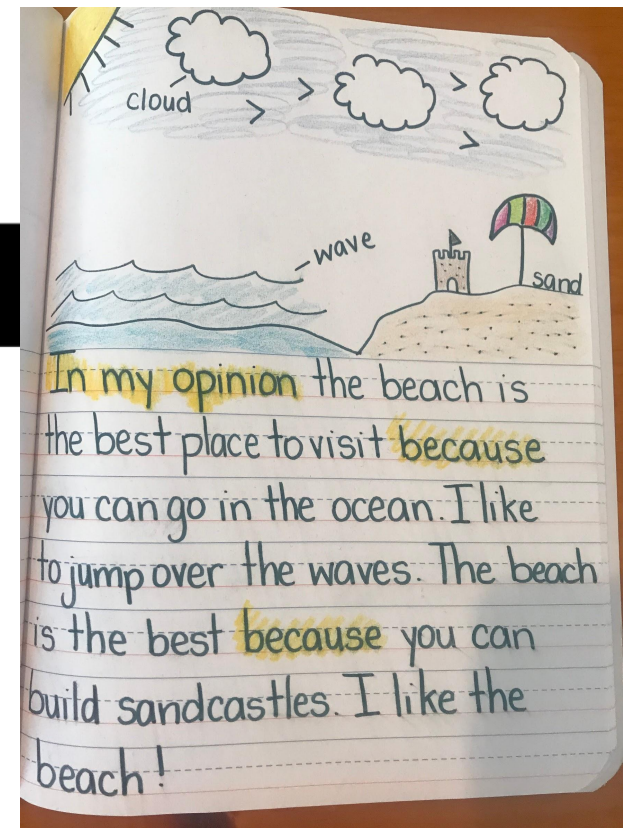 cloud
wave
sand
In my opinion the beach is
the best place to visit because
you can go in the ocean. I like
to jump over the waves. The beach
is the best because you can
build sandcastles. I like the
beach!